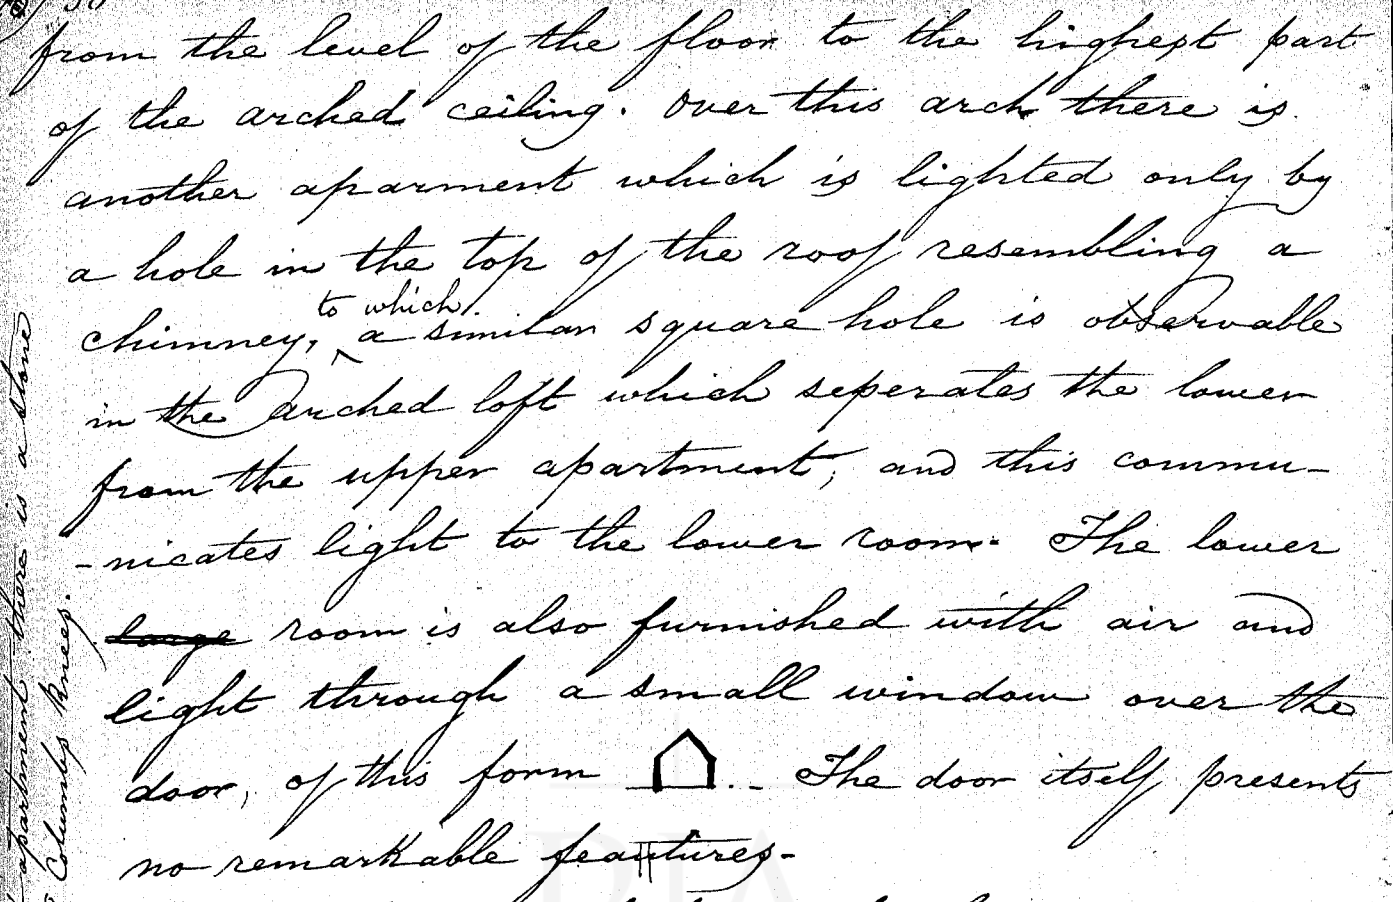 from the level of the floor to the highest part
of the arched ceiling. Over this arch there is
another aparment which is lighted only by
a hole in the top of the roof resembling a
to which
chimney, ^ a similar square hole is observable
in the arched loft which seperates the lower
from the upper apartment; and this commu-
-nicates light to the lower room. The lower
large room is also furnished with air and
light through a small window over the
door, of this form . The door itself presents
no remarkable feautures-
apartment there is a stone
Columbs Knees.